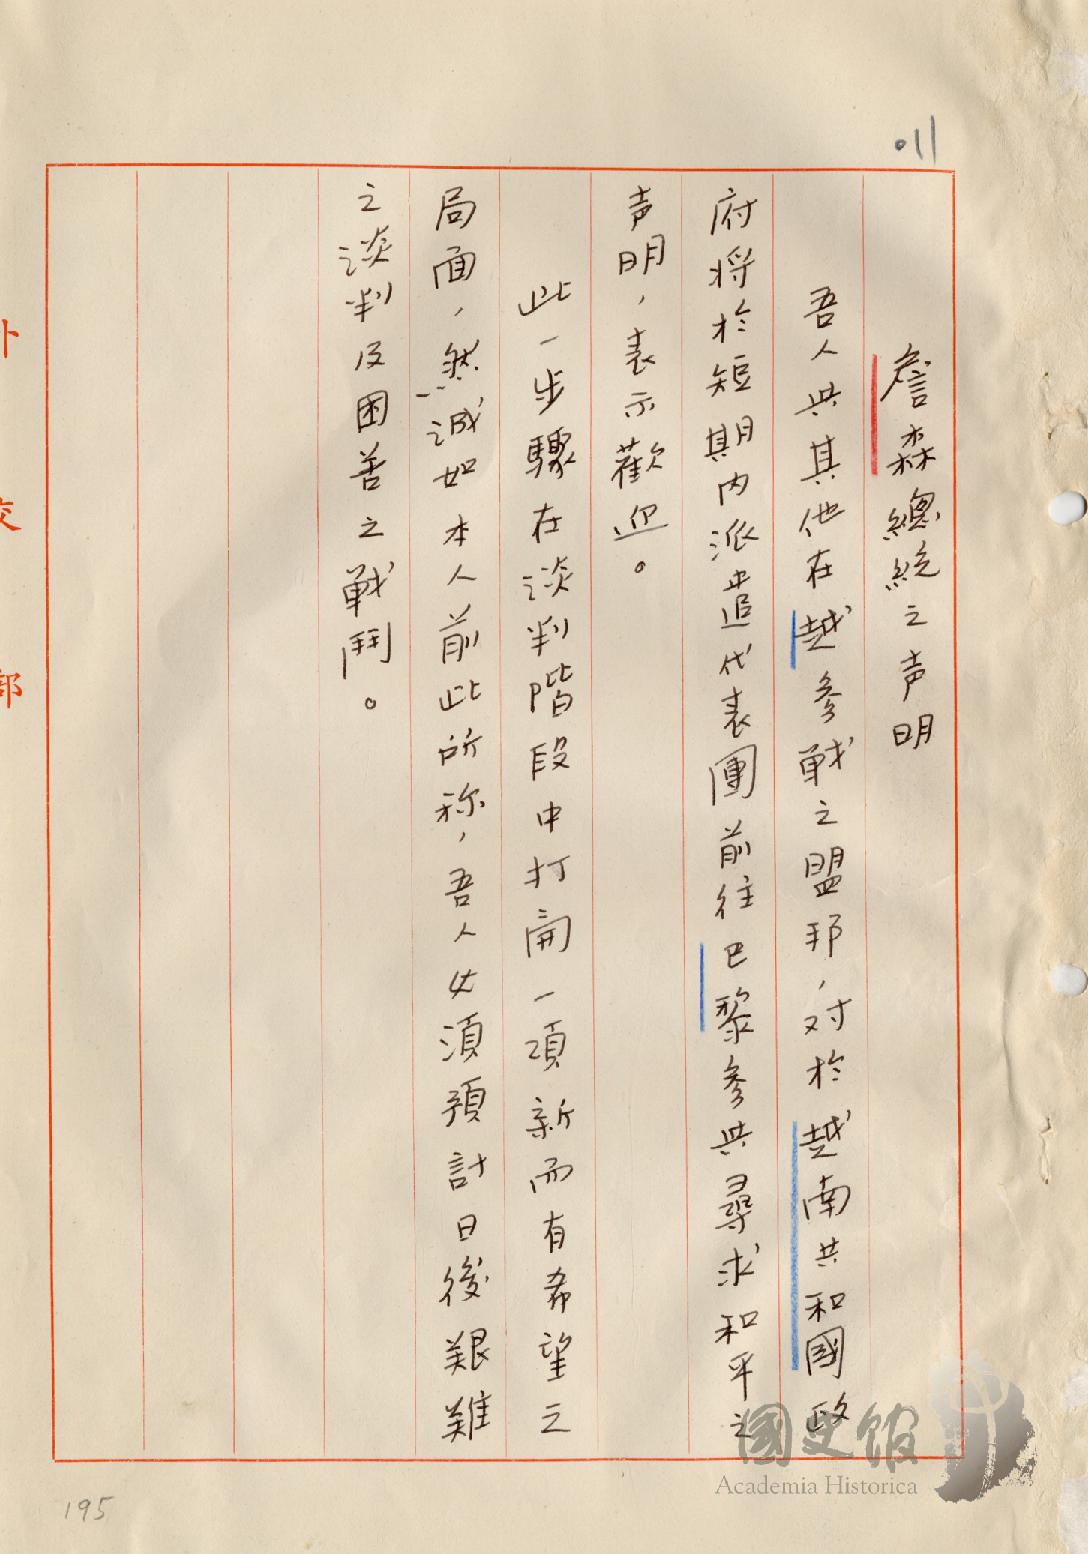 011
詹森總統之声明
吾人與其他在越參戰之盟邦，对於越南共和國政
府将於短期內派遣代表團前往巴黎參與尋求和平之
声明，表示歡迎。
此一步驟在談判階段中打開一項新而有希望之
局面，然誠如本人前此所称，吾人必須預計日後艱難
之談判及困苦之戰鬥。
外交部
195
國史館
Academia Historica